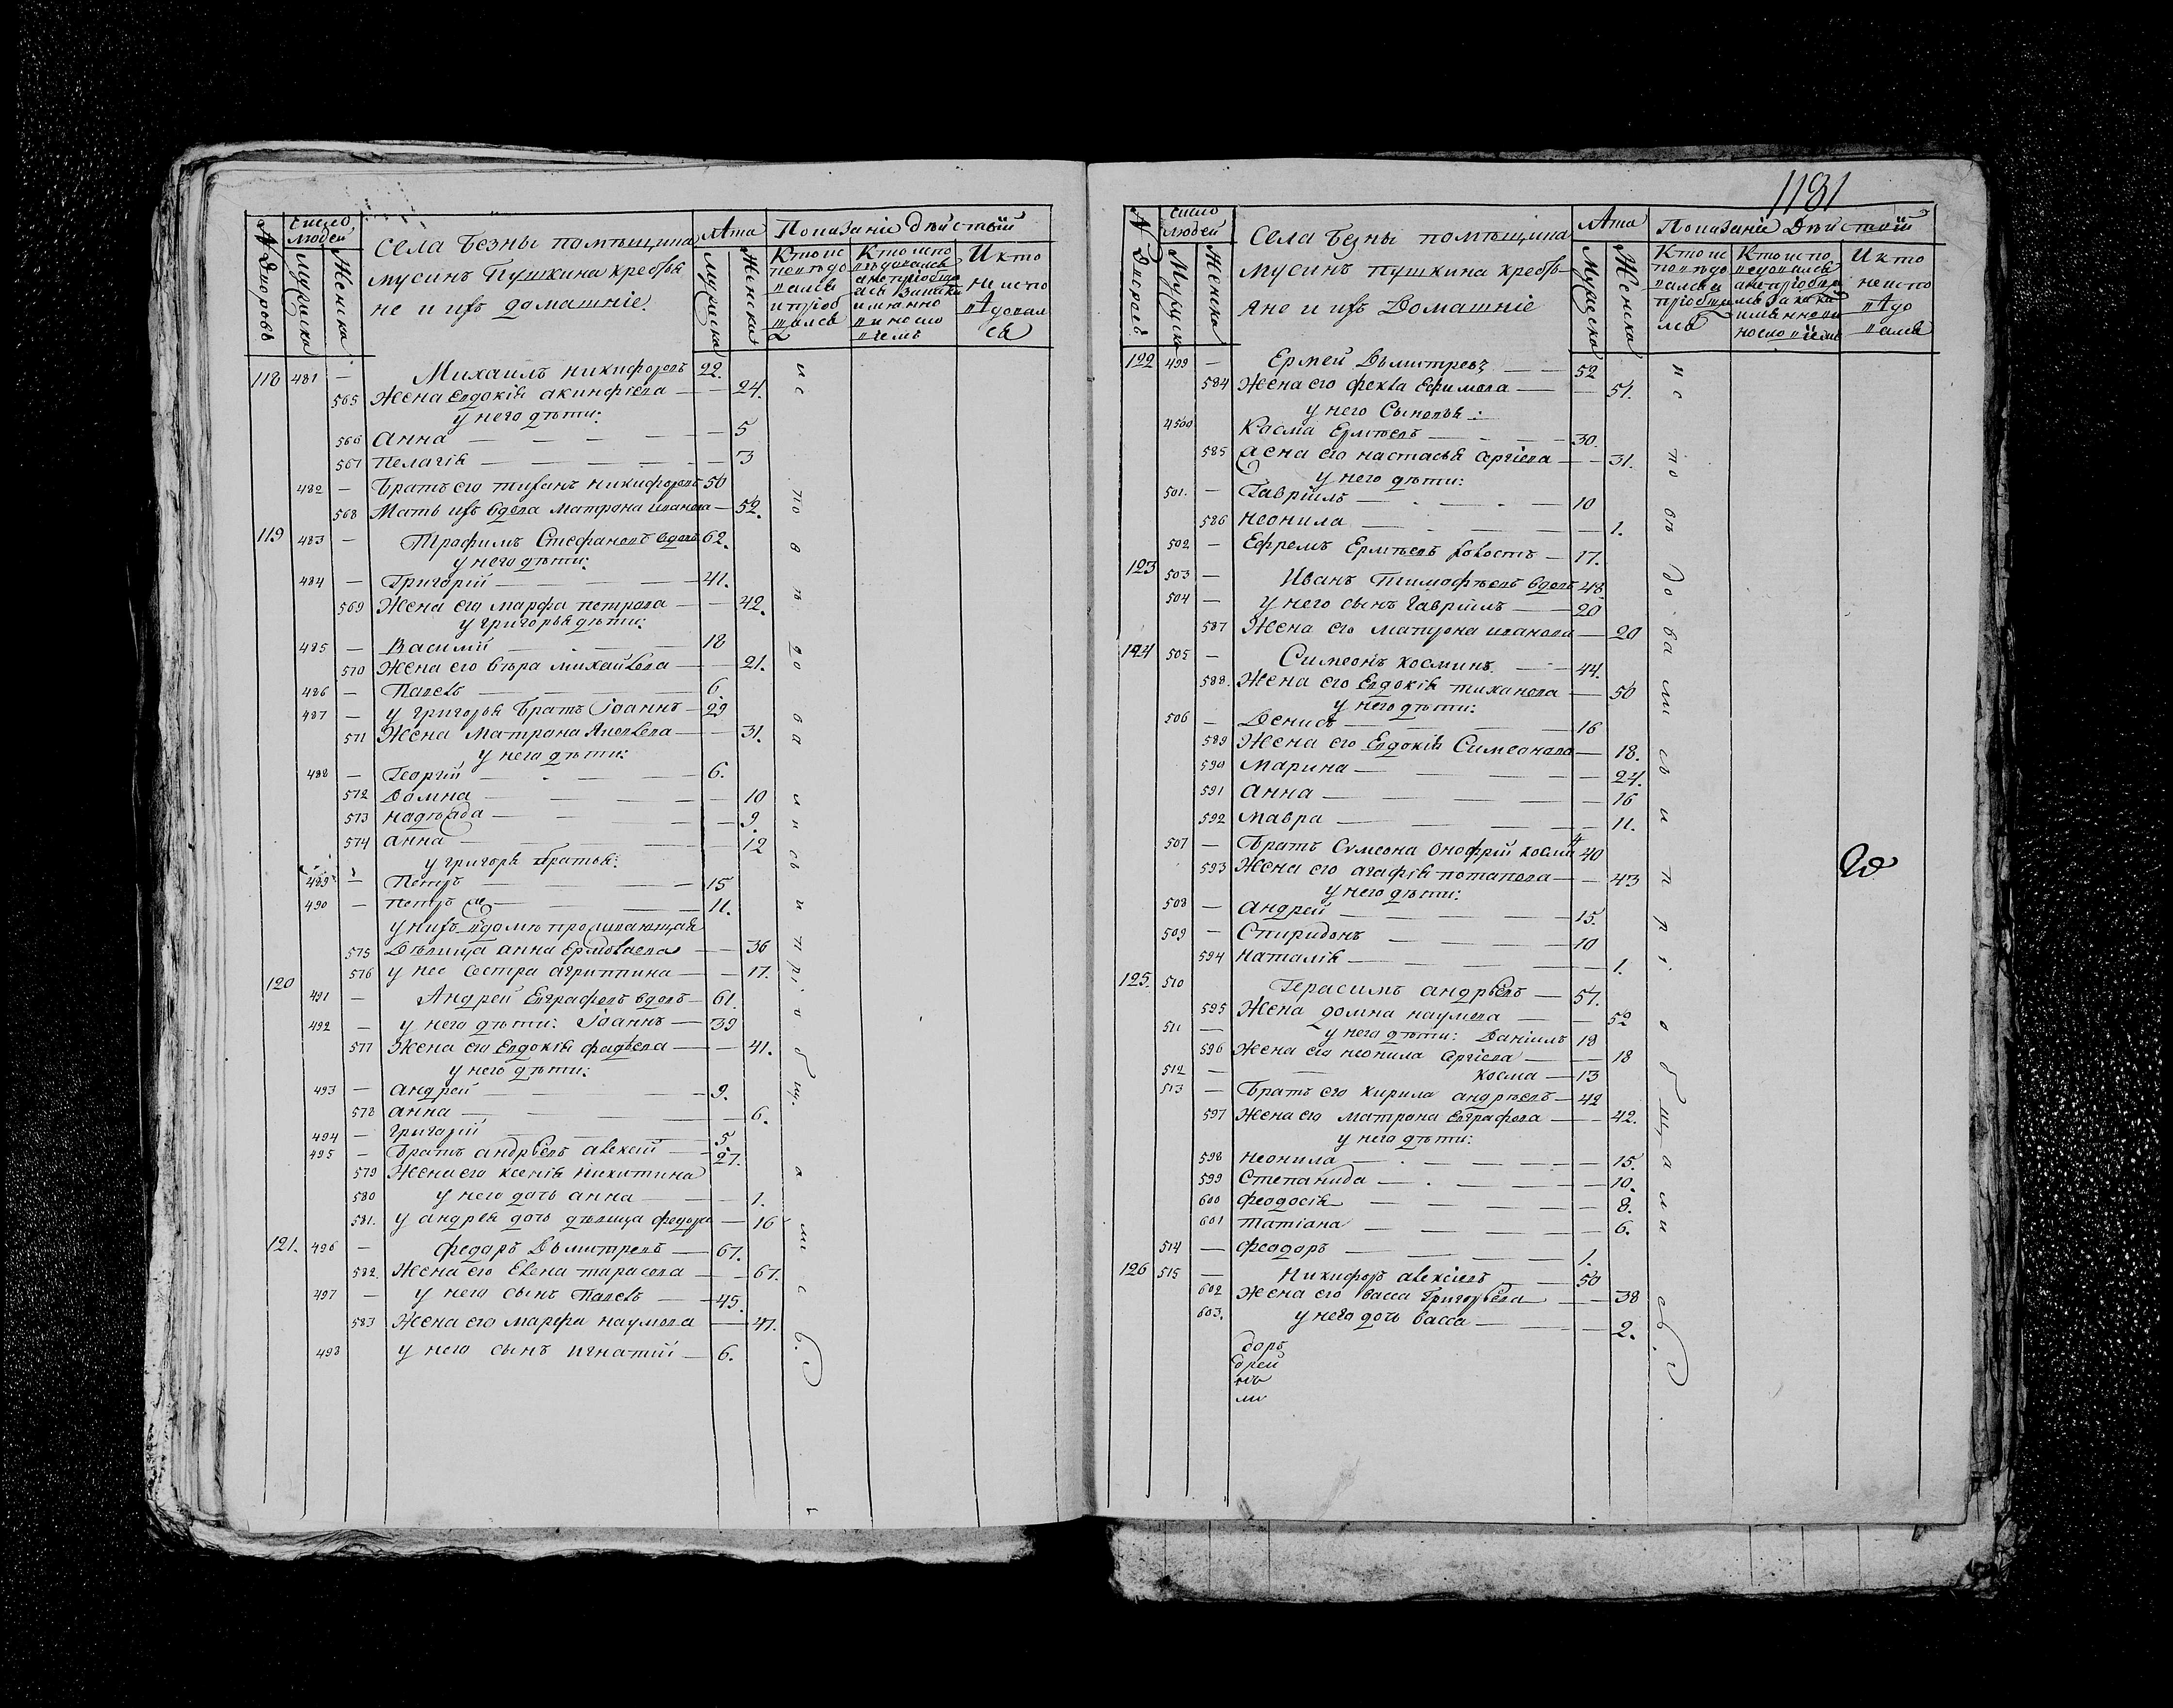 № Дворовъ
число людей
Мужеска
Женска
Села Безны помѣщика
мусинъ Пушкина кресть
не и ихъ домашніе.
Лѣта
Мужеска
Женска
Показаніе дѣйствій
Кто ис
повѣдо
вался
и пріоб
щался
Кто испо
вѣдовался
а не пріобщ
И кто
не испо
вѣдовал
ся
118 481 — Михаилъ никифоровъ 22.
565 Жена Евдокія акинфіева — 24.
у него дѣти:
566 Анна — 5
567 Пелагія — 3
482 — Братъ его тиханъ никифоровъ 50
568 Мать ихъ вдова матрона иванова — 52.
119 483 — Трафимъ Стефановъ вдовъ 62.
у него дѣти:
484 — Григорій — 41.
569 Жена его марфа петрова — 42.
у григорья дѣти:
485 — Василій — 18
570 Жена его вѣра михайлова — 21.
486 — Павелъ — 6.
487 — у григорья Братъ Іоаннъ — 29
571 Жена матрона — 31.
у него дѣти:
488 — Георгій — 6.
572 Домна — 10
573 надѣжда — 9.
574 анна — 12
у григорья братья:
489 — Петръ — 15
490 — петръ — 11.
у нихъ въ домѣ проживающая
575 Дѣвица анна Ермолаева — 36
576 у нее Сестра агриппина — 17.
120
491 — Андрей Евграфовъ вдовъ — 61.
492 — у него дѣти: Іоаннъ — 39
577 Жена его Евдокія фадѣева — 41.
у него дѣти:
493 — андрей — 9.
578 анна — 6.
494 — григорій — 5
495 — братъ андрѣевъ алексій — 27.
579 Жена его ксенія никитина
580 у него дочь анна — 1.
581. у андрея дочь дѣвица федора — 16
121. 496 — федоръ Дьмитревъ — 67.
582. Жена его Елена тарасова — 67.
497 — у него сынъ Павелъ — 45.
583 Жена его марфа наумова — 47.
498 у него сынъ игнатій — 6.
ис по вѣ до ва ли сь и прі общ. а ли сь.
1181
№ Дворовъ
число людей
Мужеска
Женска
Села Безны помѣщика
мусинъ пушкина кресть-
яне и ихъ Домашніе
Лѣта
Мужеска
Женска
Показаніе Дѣйствій
Кто ис
повѣдо
вался и
пріобща
лся
Кто испо
вѣдовался
а не пріобщ
И кто
не испо
вѣдо
вался
122 499 — Ермей Дьмитревъ — 52
584 Жена его фекла Ефимова — 51.
у него Сыновья:
4500 Касма Ермѣевъ — 30.
585 Жена его настасья сергіева — 31.
у него дѣти:
501. — Гавріилъ — 10
586 неонила — 1.
502 — Ефремъ Ермѣевъ холостъ — 17.
123 503 — Иванъ тимофѣевъ вдовъ 48
504 — у него сынъ Гавріилъ — 20
587 Жена его матрона иванова — 20
124 505 — Симеонъ косминъ — 44.
588. Жена его Евдокія тиханова — 50
у него дѣти:
506 — Денисъ — 16
589 Жена его Евдокія Симеонова — 18.
590 марина — 24.
591 анна — 16
592 мавра — 11.
507 — Братъ Симеона Онофрій косми 40
593 Жена его агафія потапова — 43
у него дѣти:
508 — андрей — 15.
509 — Спиридонъ — 10
594 наталія — 1.
125. 510 Герасимъ андрѣевъ — 57.
595 Жена домна наумова — 52
511 — у него дѣти: Даніилъ 18
596 Жена его неонила сергіева — 18
512 — косма — 13
513 — братъ его кирила андрѣевъ — 42
597 Жена его матрона Евграфова — 42.
у него дѣти:
598 неонила — 15.
599 Степанида — 10.
600 феодосія — 8.
601 татіана — 6.
514 — феодоръ — 1.
126 515 — никифоръ алексіевъ — 50
602 Жена его васса григорьева — 38
603. у него дочь васса — 2.
доръ
дрей
ис по вѣ до ва ли сь и п р і о б щ а ли сь.